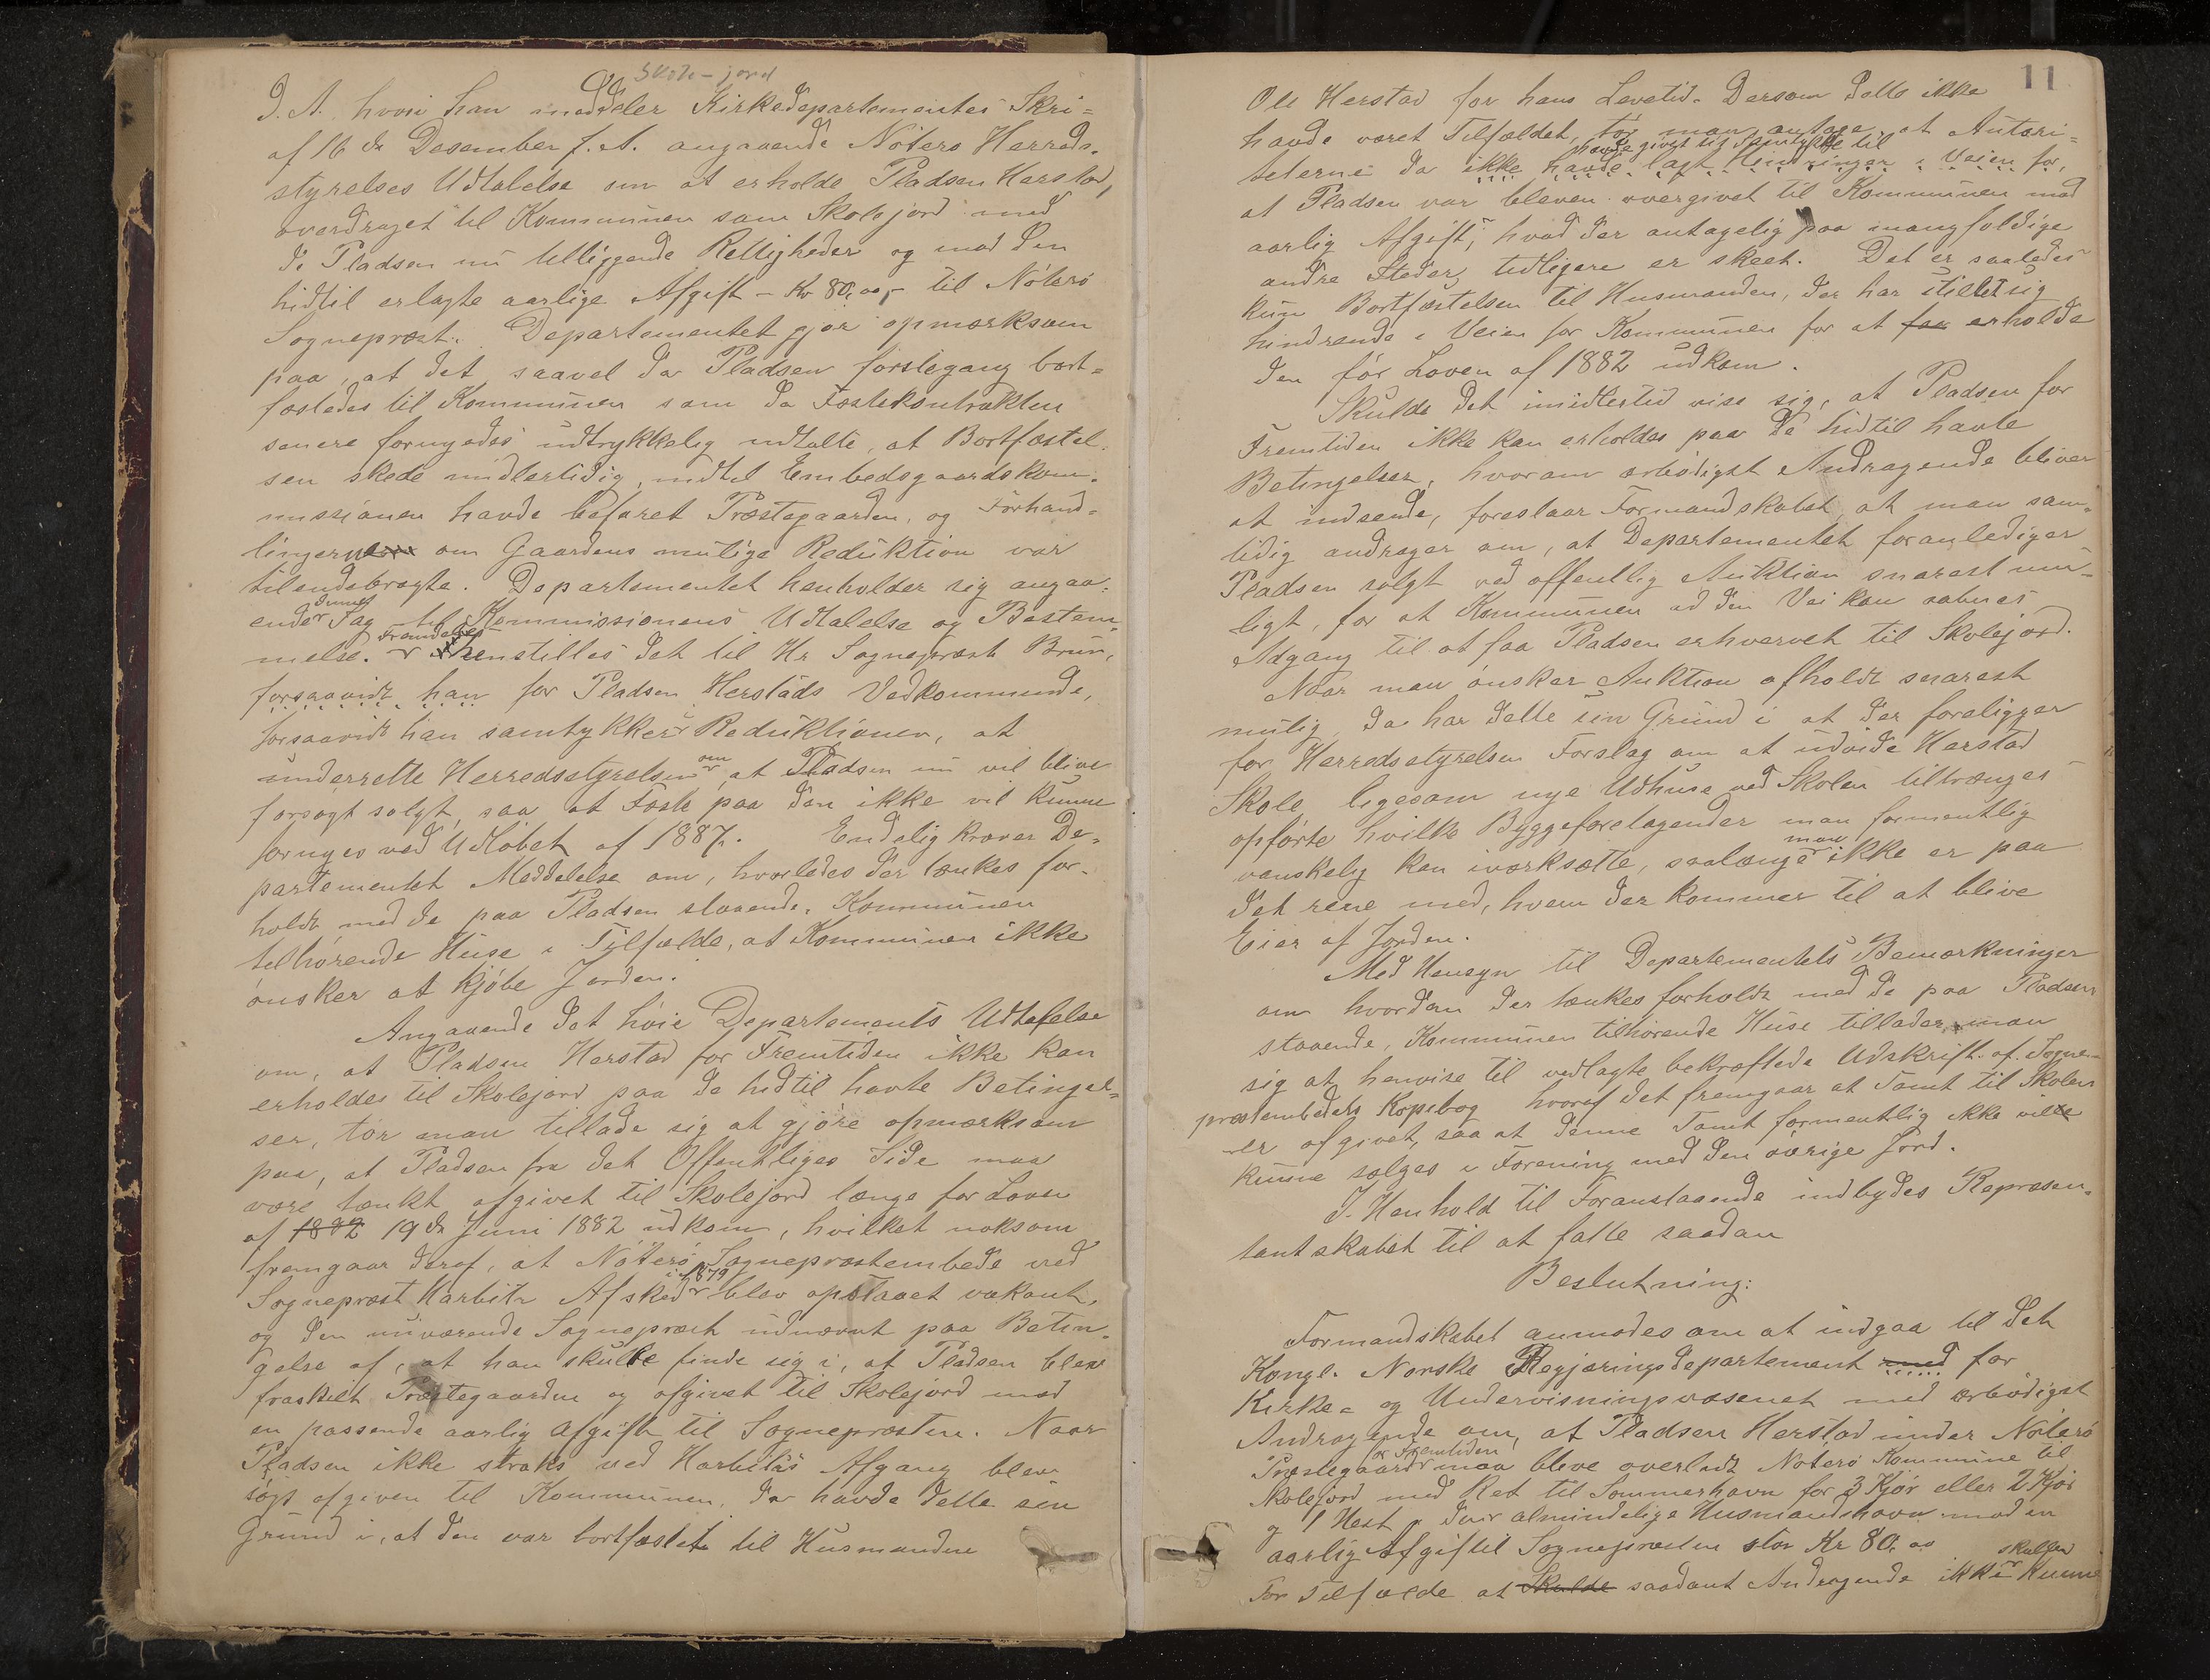 Skole-jord
d. A. hvori han meddeler Kirkedepartementes Skri=
af 16de Desember f. A. angaaende Nøterø Herreds-
styrelses Udtalelse om at erholde Pladsen Herstad,
overdraget til Kommunen som Skolejord med
de Pladsen nu tilliggende Rettigheder og mod den
hidtil erlagte aarlige Afgift - Kr 80,00,- til Nøterø
Sogneprest. Departementet gjør opmærksom
paa, at det saavel da Pladsen førstegang bort=
fæstedes til Kommunen som da Fæstekontrakten
senere fornyedes udtrykkelig udtalte, at Bortfæstel-
sen skede midlertidig, indtil Embedsgaardskom-
missionen havde befaret Præstegaarden, og Forhand=
lingerne om Gaardens mulige Reduktion var
tilendebragte. Departementet henholder sig angaa-
ende denne Sag til Kommissionens Udtalelse og Bestem-
melse. Fremdeles henstilles det til Hr Sogneprest Bruun,
forsaavidt han for Pladsen Herstads Vedkommende,
forsaavidt han samtykker Reduktionen, at
underrette Herredsstyrelsen om, at Pladsen nu vil blive
forsøgt solgt, saa at Fæste paa den ikke vil kunne
fornyes ved Udløbet af 1887. Endelig kræver De-
partementet Meddelelse om, hvorledes der tænkes for-
holdt med de paa Pladsen staaende, Kommunen
tilhørende Huse i Tilfælde, at Kommunen ikke
ønsker at kjøbe Jorden.
Angaaende det høie Departements Udtalelse
om, at Pladsen Herstad for Fremtiden ikke kan
erholdes til Skolejord paa de hidtil havte Betingel=
ser, tør man tillade sig at gjøre opmærksom
paa, at Pladsen fra det Offentliges Side maa
være tænkt afgivet til Skolejord længe før Loven
af 1882 19de Juni 1882 udkom, hvilket noksom
fremgaar deraf, at Nøterø Sogneprestembede ved
Sogneprest Harbitz Afsked i 1879 blev opslaaet vakant,
og den nuværende Sogneprest udnævnt paa Betin-
gelse af, at han skulde finde sig i, at Pladsen blev
fraskilt Præstegaarden og afgivet til Skolejord mod
en passende aarlig Afgift til Sognepresten. Naar
Pladsen ikke straks ved Harbitz's Afgang blev
søgt afgiven til Kommunen, da havde dette sin
Grund i, at den var bortfæstet til Husmanden
11
Ole Herstad for hans Levetid. Dersom dette ikke
havde været Tilfældet, tør man antage, at Autori=
teterne da havde givet sit Samtykke til ikke havde lagt Hindringer i Veien for,
at Pladsen var bleven overgivet til Kommunen mod
aarlig Afgift, hvad der antagelig paa mangfoldige
andre Steder tidligere er skeet. Det er saaledes
kun Bortfæstelsen til Husmanden, der har stillet sig
hindrende i Veien for Kommunen for at faa erholde
den før Loven af 1882 udkom.
Skulde det imidlertid vise sig, at Pladsen for
Fremtiden ikke kan erholdes paa de hidtil havte
Betingelser, hvorom ærbødigst Andragende bliver
at indsende, foreslaar Formandskabet, at man sam-
tidig andrager om, at Departementet foranlediger
Pladsen solgt ved offentlig Auktion snarest mu-
ligt, for at Kommunen ad den Vei kan aabnes
Adgang til at faa Pladsen erhvervet til Skolejord.
Naar man ønsker Auktion afholdt snarest
mulig, da har dette sin Grund i at der foreligger
for Herredsstyrelsen Forslag om at udvide Herstad
Skole, ligesom nye Udhuse ved Skolen tiltrænges
opførte hvilke Byggeforetagender man formentlig
vanskelig kan iværksætte, saalænge man ikke er paa
det rene med, hvem der kommer til at blive
Eier af Jorden.
Med Hensyn til Departementets Bemærkninger
om hvordan der tænkes forholdt med de paa Pladsen
staaende, Kommunen tilhørende Huse tillader man
sig at henvise til vedlagte bekræftede Udskrift af Sogne-
præstembedets Kopibog hvoraf det fremgaar at Tomt til Skolen
er afgivet, saa at denne Tomt formentlig ikke vil
kunne sælges i Forening med den øvrige Jord.
I Henhold til Foranstaaende indbydes Repræsen-
tantskabet til at fatte saadan
Beslutning:
Formandskabet anmodes om at indgaa til det
Kongl. Norske Regjeringsdepartement med for
Kirke- og Undervisningsvæsenet med ærbødigst
Andragende om, at Pladsen Herstad under Nøterø
Præstegaard for Fremtiden maa blive overladt Nøterø Kommune til
Skolejord med Ret til Sommerhavn for 3 Kjør eller 2 Kjør
og 1 Hest i den almindelige Husmandshavn mod en
aarlig Afgift til Sognepresten stor Kr 80.00
For Tilfælde at skulde saadant Andragende ikke skulde kunne